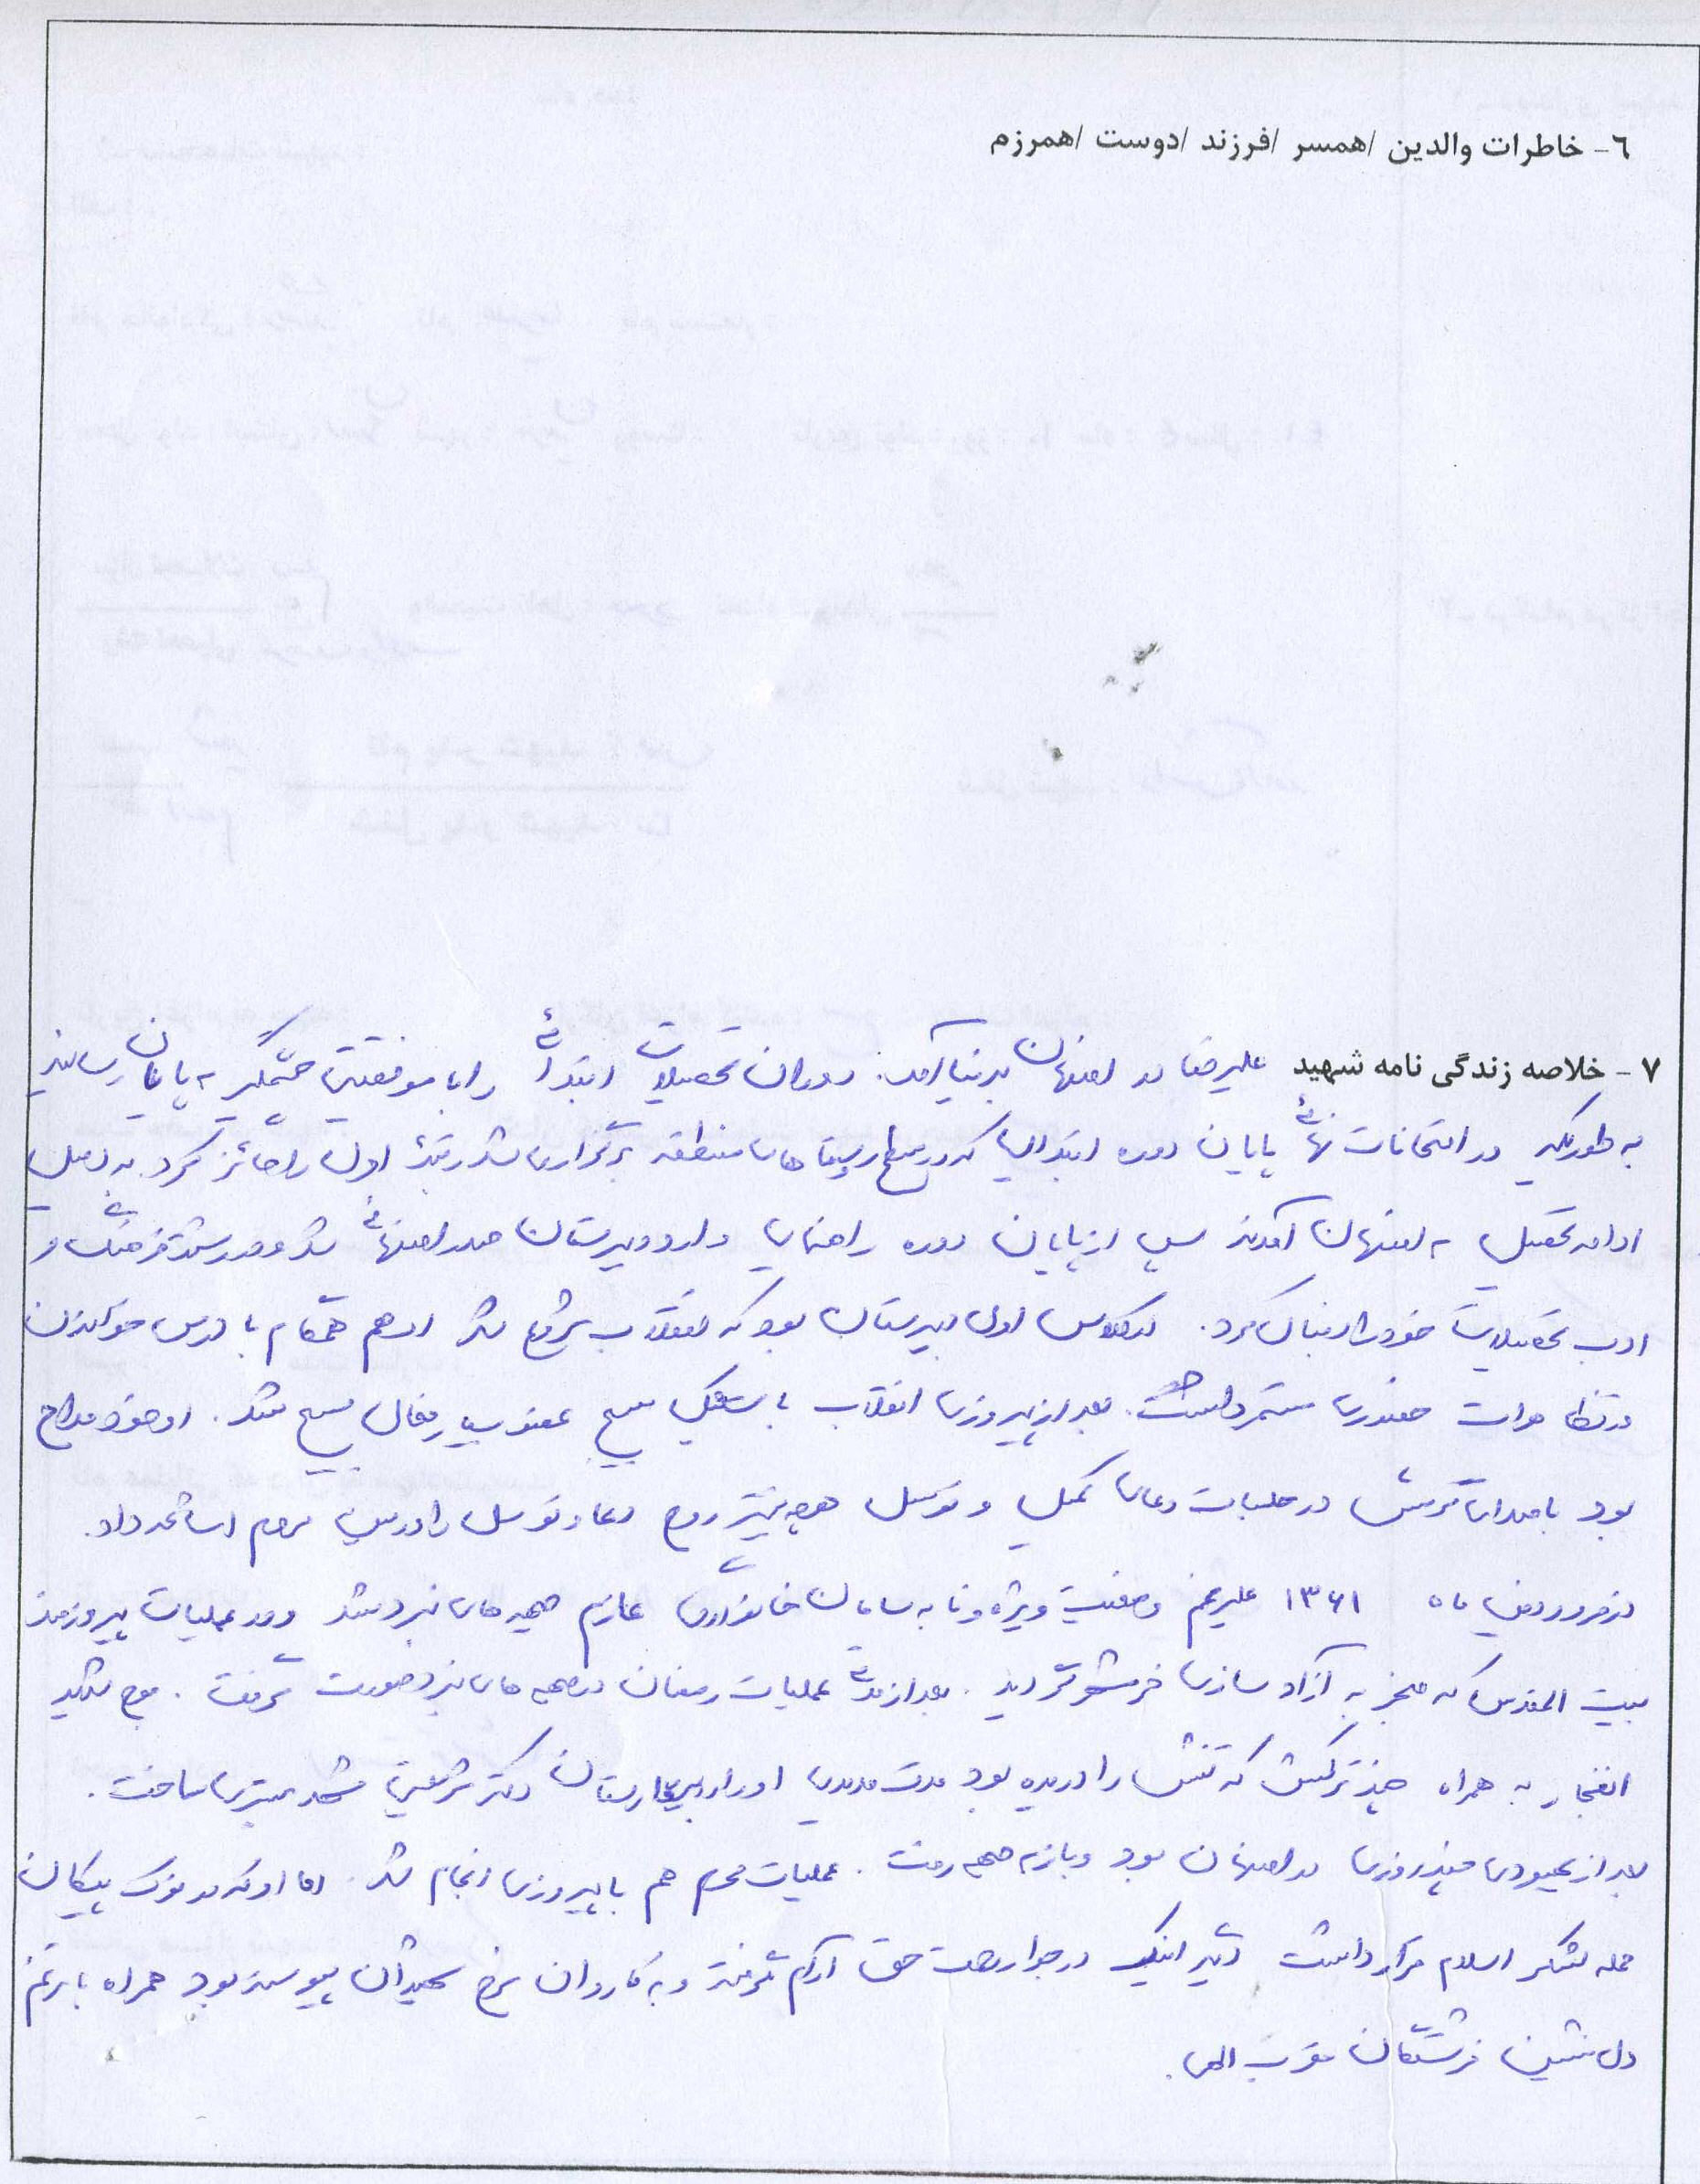 ٦- خاطرات والدین /همسر /فرزند /دوست /همرزم
٧- خلاصه زندگی نامه شهید علیرضا در اصفهان بدنیا آمد. دوران تحصیلات ابتدائی را با موفقیتی چشمگیر به پایان رسانید
به طوریکه در امتحانات نهائی پایان دوره ابتدایی که در سطح روستاهای منطقه برگزاری شد رتبهٔ اول را حائز کرد. به دلیل
ادامه تحصیل به اصفهان آمدند پس از پایان دوره راهنمایی وارد دبیرستان صدر اصفهانی شد و در رشته فرهنگ و
ادب تحصیلات خود را دنبال کرد. کلاس اول دبیرستان بود که انقلاب شروع شد او هم همگام با درس خواندن
در تظاهرات حضوری مستمر داشت. بعد از پیروزی انقلاب با تشکیل بسیج عضو بسیار فعال بسیج شد. او خود مداح
بود با صدای گرمش در جلسات دعای کمیل و توسل هرچه بیشتر روح دعا و توسل را در بین مردم اشاعه داد.
در فروردین ماه ١٣٦١ علیرغم وضعیت ویژه و نا به سامان خانوادگی عازم جبهه های نبرد شد و در عملیات پیروزمند
بیت المقدس که منجر به آزاد سازی خرمشهر گردید. بعد از مدتی عملیات رمضان در جبهه های نبرد صورت گرفت. موج شدید
انفجار به همراه چند ترکش که تنش را دریده بود مدت مدیدی او را در بیمارستان دکتر شریعتی مشهد بستری ساخت.
بعد از بهبودی چند روزی در اصفهان بود و باز به جبهه رفت. عملیات محرم هم با پیروزی انجام شد. اما او که در نوک پیکان
حمله لشکر اسلام قرار داشت اینک در جوار رحمت حق آرام گرفته و به کاروان سرخ شهیدان پیوسته بود همراه با ترنم
دل نشین فرشتگان مقرب الهی.